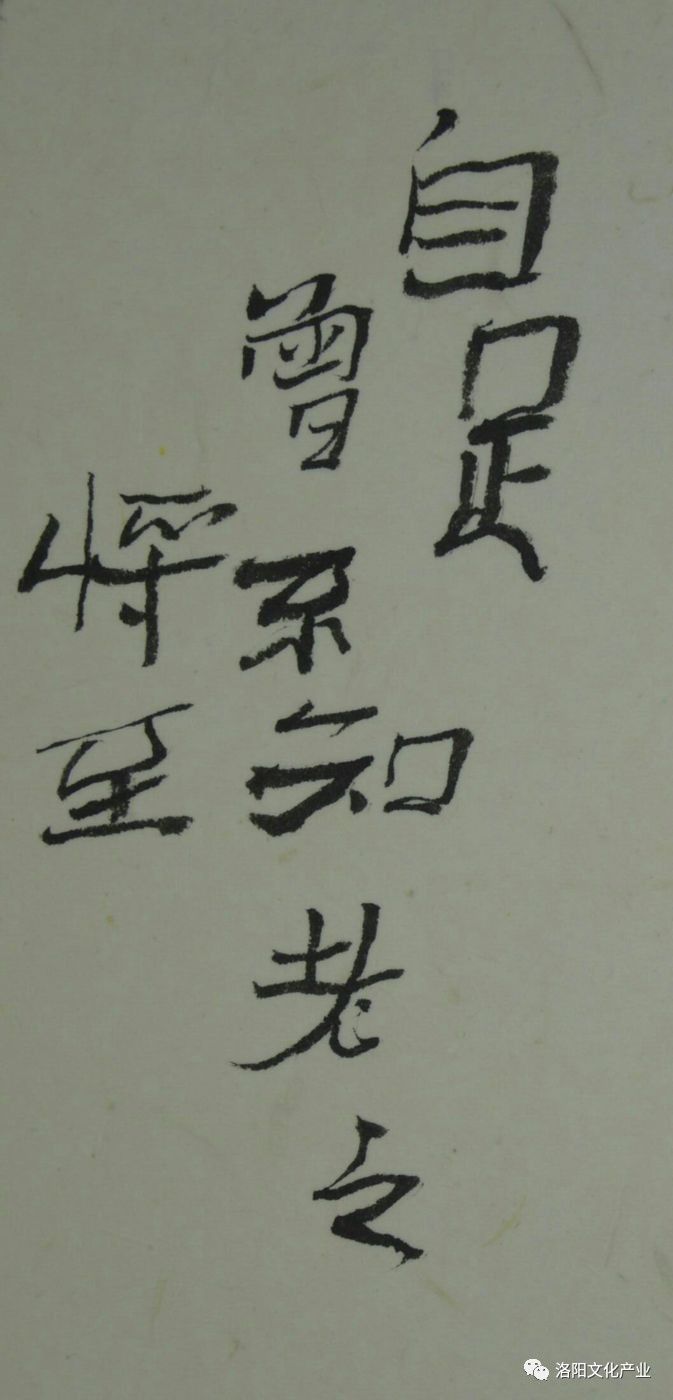 自足
曾不知老之
将至
洛阳文化产业